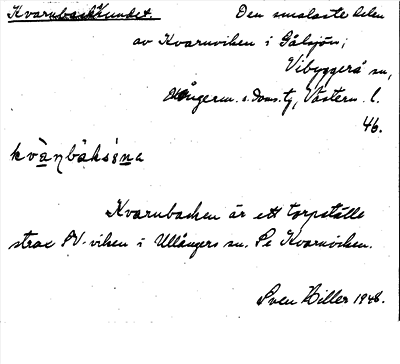 Kvarnbacksundet. Den smalaste delen
av Kvarnviken i Gålsjön;
Vibyggerå sn,
Ångerm. s. doms. tj, Västern. l.
46.
kvànbàks`ɩna
Kvarnbacken är ett torpställe
strax SV-viken i Ullångers sn. Se Kvarnviken.
Sven Hiller 1948.